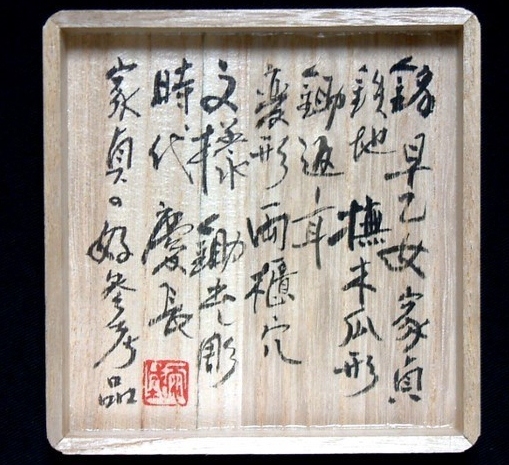 銘 早乙女家貞
鉄地 撫木瓜形
鋤返耳
変形両櫃穴
文様 鋤出し彫
時代 慶長
家貞の好参考品